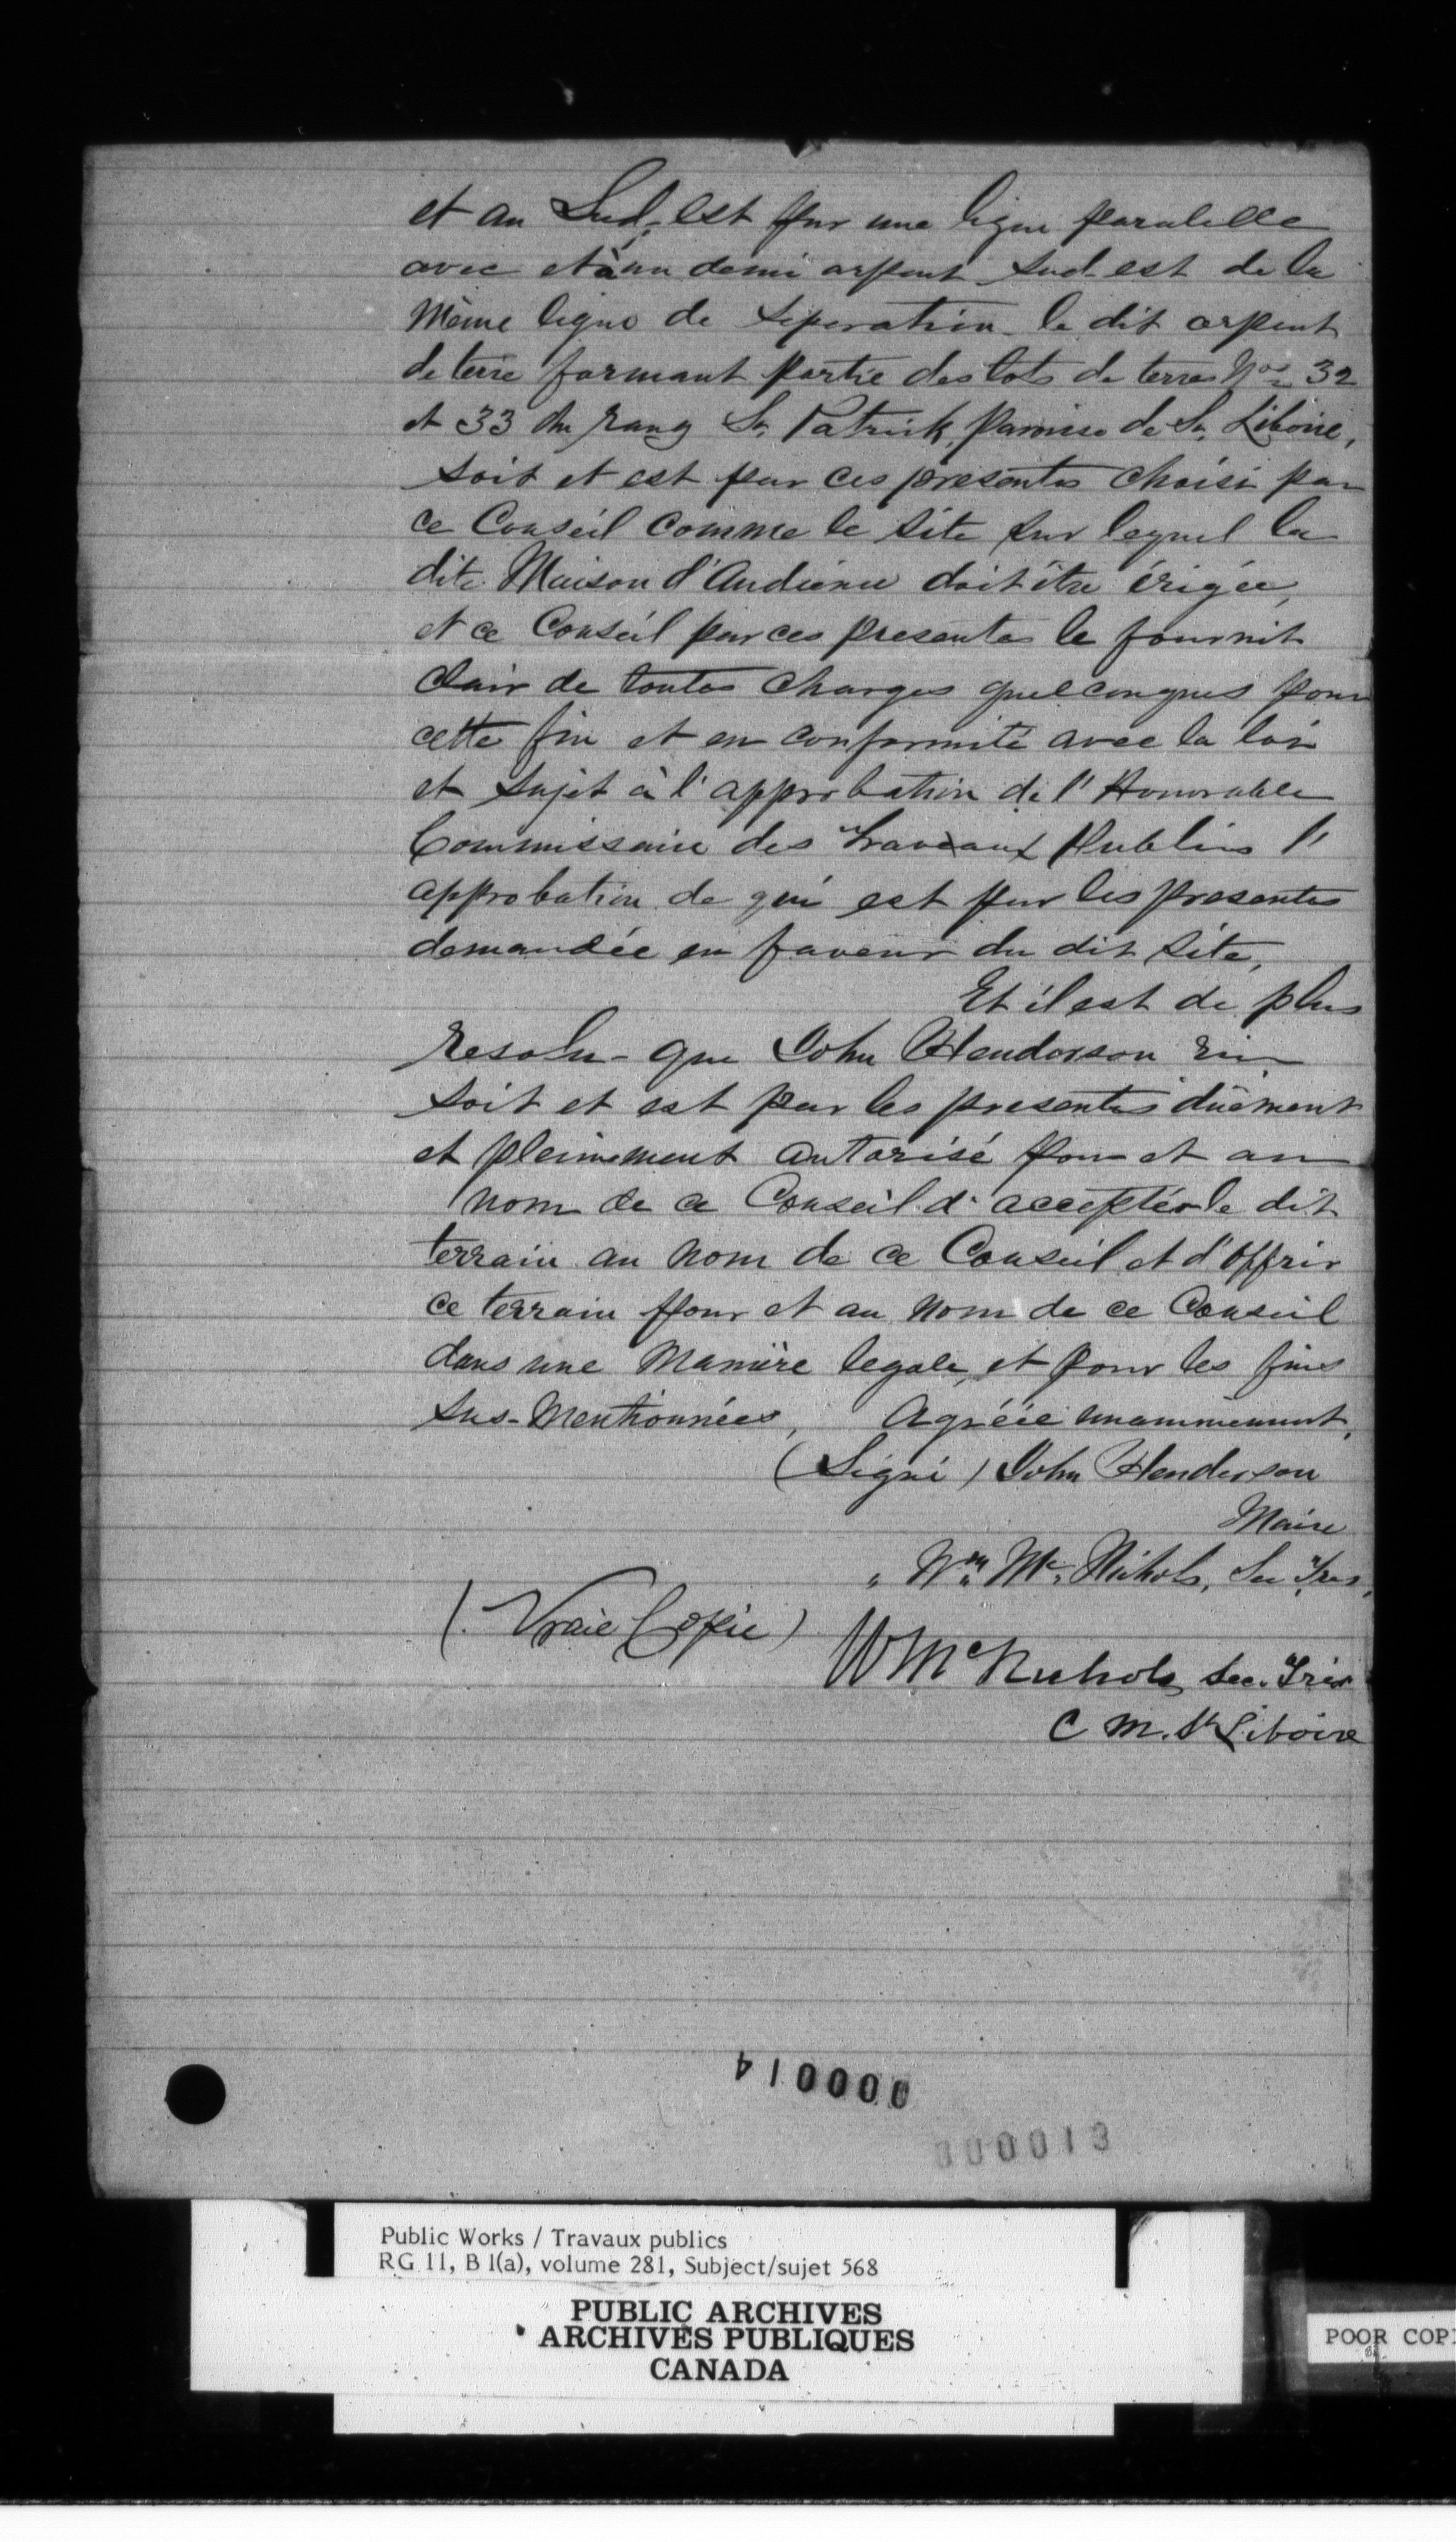 et au Sud-est par une ligne paralelle
avec et à un demi arpent Sud-est de la
Même ligne de Séperation - le dit arpent
de terre formant partie des lots de terres Nos 32
et 33 du rang St. Patrick, paroisse de St. Liboire,
soit et est par ces présentes choisi par
ce Conseil comme le site sur lequel la
dite Maison d'Audience doit être érigée,
et ce Conseil par ces presentes le fournit
clair de toutes charges quelconques pour
cette fin et en conformité avec la loi
et sujet à l'approbation de l'Honorable
Commissaire des Traveaux Publics l'
approbation de qui est par les presentes
demandée en faveur du dit site,
Et il est de plus
Resolu - que John Henderson
soit et est par les presentes dûement
et pleinement autorisé pour et au
nom de ce Conseil d'accepter le dit
terrain au nom de ce Conseil et d'offrir
ce terrain pour et au nom de ce Conseil
dans une Manière legale, et pour les fins
Sus-Mentionnées, Agréée unanimement,
(Signé) John Henderson
Maire
" Wm Mc. Nichols, Sec Tres,
(Vraie Copie)
W McNichols Sec. Très
C M. St Liboire
000014
000013
Public Works / Travaux publics
RG 11, B 1(a), volume 281, Subject/sujet 568
PUBLIC ARCHIVES
ARCHIVES PUBLIQUES
CANADA
POOR COP